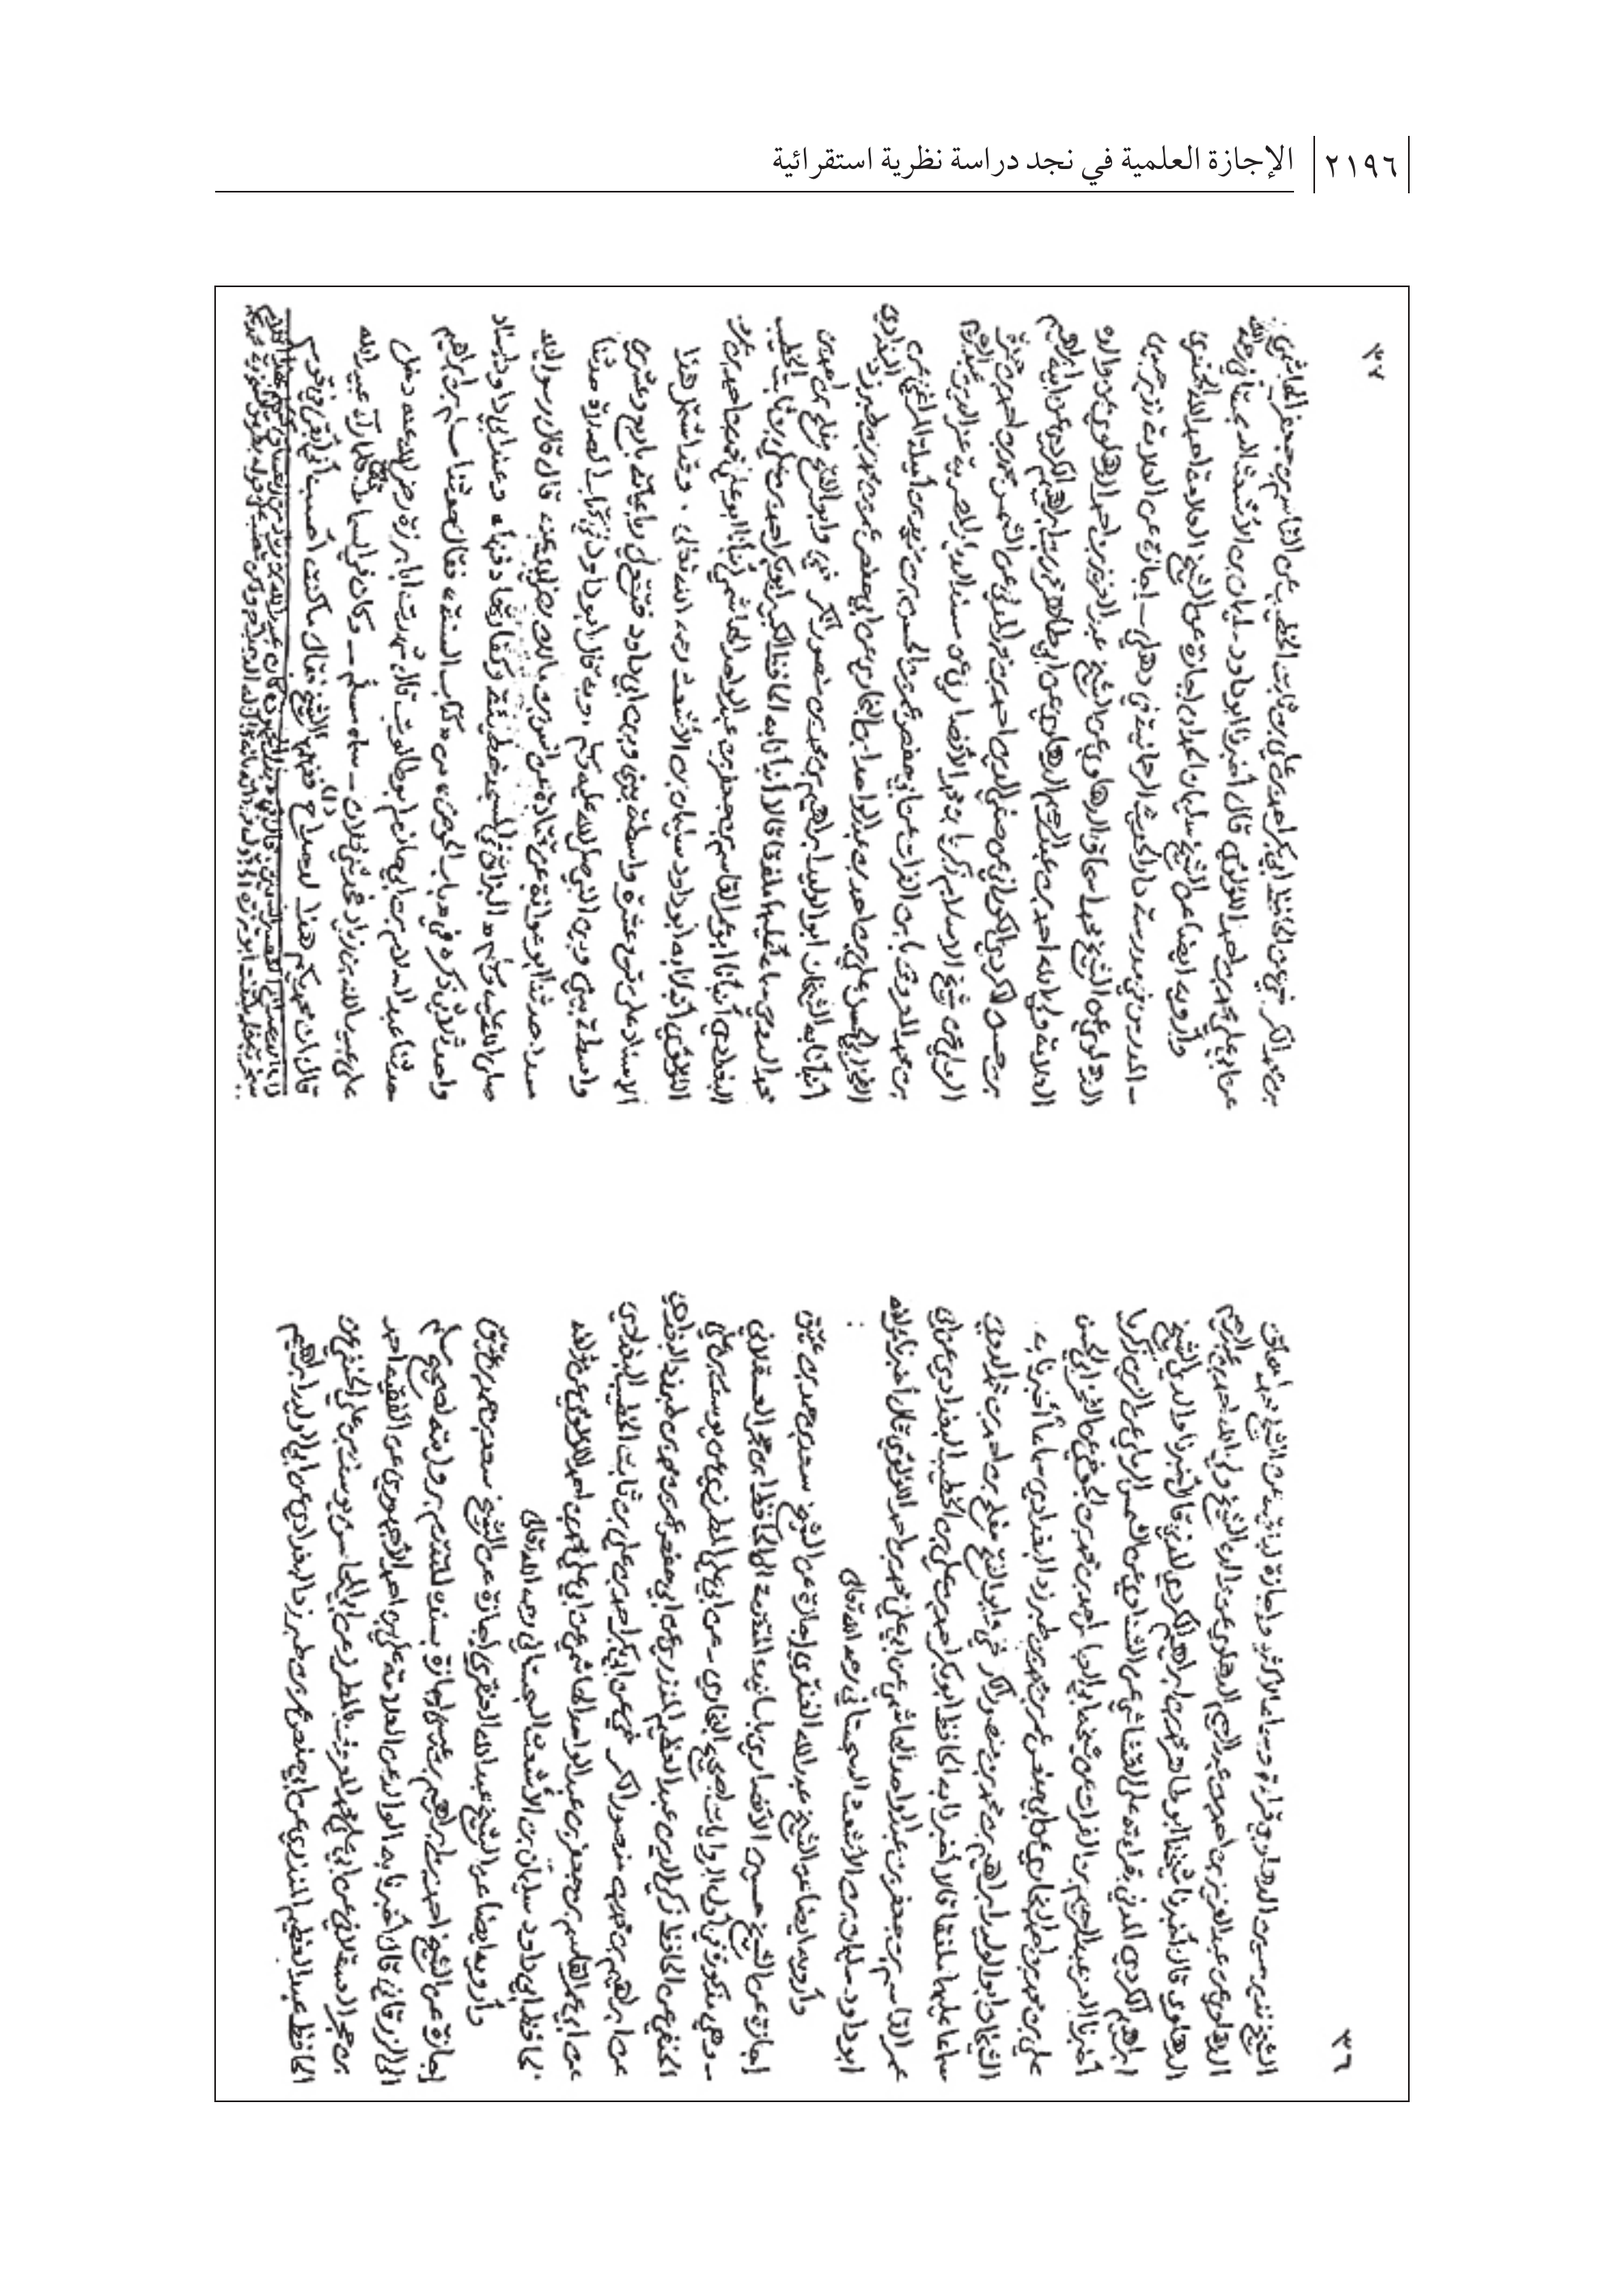 ٢١٩٦ الإجازة العلمية في نجد دراسة نظرية استقرائية
٣٦
الشيخ نذير حسين الدهلوي قراءة وسماعا لأكثره وإجازة لباقيه عن الشيخ محمد اسحاق
الدهلوي عن عبد العزيز بن احمد بن عبد الرحيم الدهلوي عن والده الشيخ ولي الله احمد بن عبد الرحيم
الدهلوي قال أخبرنا شيخنا ابو طاهر محمد بن ابراهيم الكردي المدني قال أخبرنا والدي الشيخ
ابراهيم الكردي المدني بقراءته على القشاشي عن الشناوي عن الشمس الرملي عن الزين زكريا
أخبرنا العز عبد الرحيم بن الفرات عن شيخه ابي العباس احمد بن محمد بن الجوخي عن الفخر ابي الحسن
علي بن محمد بن احمد البخاري عن ابي حفص عمر بن محمد بن طبرزد البغدادي سماعا أخبرنا به
الشيخان ابو الوليد ابراهيم بن محمد بن منصور الكرخي وابو الفتح مفلح بن احمد بن محمد الدومي
سماعا عليهما ملفقا قالا أخبرنا به الحافظ ابو بكر احمد بن علي بن الخطيب البغدادي عن ابي
عمر القاسم بن جعفر بن عبد الواحد الهاشمي عن ابي علي محمد بن احمد اللؤلؤي قال أخبرنا به
ابو داود سليمان بن الأشعث السجستاني رحمه الله تعالى
وأرويه ايضا عن الشيخ عبد الله العنقري إجازة عن الشيخ سعد بن حمد بن عتيق
إجازة عن الشيخ حسين الأنصاري بأسانيده المتقدمة الى الحافظ ابن حجر العسقلاني
- وهي مذكورة في أول الروايات لصحيح البخاري - عن ابي علي المطرزي عن يوسف بن علي
الحنفي عن الحافظ زكي الدين عبد العظيم المنذري عن ابي حفص عمر بن محمد بن طبرزد البغدادي
عن ابراهيم بن محمد بن منصور الكرخي عن ابي بكر احمد بن علي بن ثابت الخطيب البغدادي
عن ابي عمر القاسم بن جعفر بن عبد الواحد الهاشمي عن ابي علي محمد بن احمد اللؤلؤي عن مؤلفه
الحافظ ابي داود سليمان بن الأشعث السجستاني رحمه الله تعالى
وأرويه ايضا عن الشيخ عبد الله العنقري إجازة عن الشيخ سعد بن حمد بن عتيق
إجازة عن الشيخ احمد بن ابراهيم بن عيسى إجازة بسنده المتقدم بروايته لصحيح مسلم
الى الزرقاني قال أخبرنا به الوالد عن العلامة علي بن احمد الأجهوري عن الفقيه احمد
بن حجر العسقلاني عن ابي علي محمد المعروف بالمطرز عن ابي المحاسن يوسف بن علي الحنفي عن
الحافظ عبد العظيم المنذري عن ابي حفص عمر بن طبرزد البغدادي عن ابي الوليد ابراهيم
٣٧
بن محمد الكرخي عن الحافظ ابي بكر احمد بن علي بن ثابت الخطيب عن القاسم بن جعفر الهاشمي
عن ابي علي محمد بن احمد اللؤلؤي قال أخبرنا ابو داود سليمان بن الأشعث السجستاني رحمه الله
وأرويه ايضا عن الشيخ سليمان الحمدان إجازة عن الشيخ العلامة احمد الله
- المدرس في مدرسة دار الحديث الرحمانية في دهلي - إجازة عن العلامة نذير حسين
الدهلوي عن الشيخ محمد اسحاق الدهلوي عن الشيخ عبد العزيز بن احمد الدهلوي عن والده
العلامة ولي الله احمد بن عبد الرحيم الدهلوي عن ابي طاهر محمد بن ابراهيم الكردي عن ابيه ابراهيم
بن حسن الكردي الكوراني عن صفي الدين احمد بن محمد المدني عن الشمس محمد بن احمد بن حمزة
الرملي عن شيخ الاسلام زكريا بن محمد الأنصاري عن مسند الديار المصرية عز الدين عبد الرحيم
بن محمد المعروف بابن الفرات عن ابي حفص عمر بن الحسن بن مزيد بن أميلة المراغي عن
الفخر ابي الحسن علي بن احمد بن عبد الواحد ابن البخاري عن ابي حفص عمر بن محمد بن طبرزد البغدادي
أنبأنا به الشيخان ابو الوليد ابراهيم بن محمد بن منصور الكرخي وابو الفتح مفلح بن احمد بن
محمد الدومي سماعا عليهما ملفقا قالا أنبأنا به الحافظ الكبير ابو بكر احمد بن علي بن ثابت الخطيب
البغدادي أنبأنا ابو عمر القاسم بن جعفر بن عبد الواحد الهاشمي أنبأنا ابو علي محمد بن احمد بن عمر
اللؤلؤي أنبأنا به ابو داود سليمان بن الأشعث رحمه الله تعالى ، وقد اشتمل هذا
الاسناد على تسع عشرة واسطة بيني وبين ابي داود
واسطة بيني وبين النبي صلى الله عليه وسلم ، وبه قال ابو داود في
مسدد حدثنا ابو عوانة عن قتادة عن انس بن مالك رضي الله عنه قال قال رسول الله
صلى الله عليه وسلم « البزاق في المسجد خطيئة وكفارتها دفنها »
واحد ثلاثي ذكره في « باب الحوض » من « كتاب السنة » فقال حدثنا مسلم بن ابراهيم
حدثنا عبد السلام بن ابي حازم ابو طالوت قال شهدت أبا برزة رضي الله عنه دخل
على عبيد الله بن زياد فحدثني فلان - سماه مسلم - وكان في السماط فلما رآه عبيد الله
قال ان محمديكم هذا لدحداح ففهمها الشيخ فقال ما كنت أحسب أني أبقى في قوم